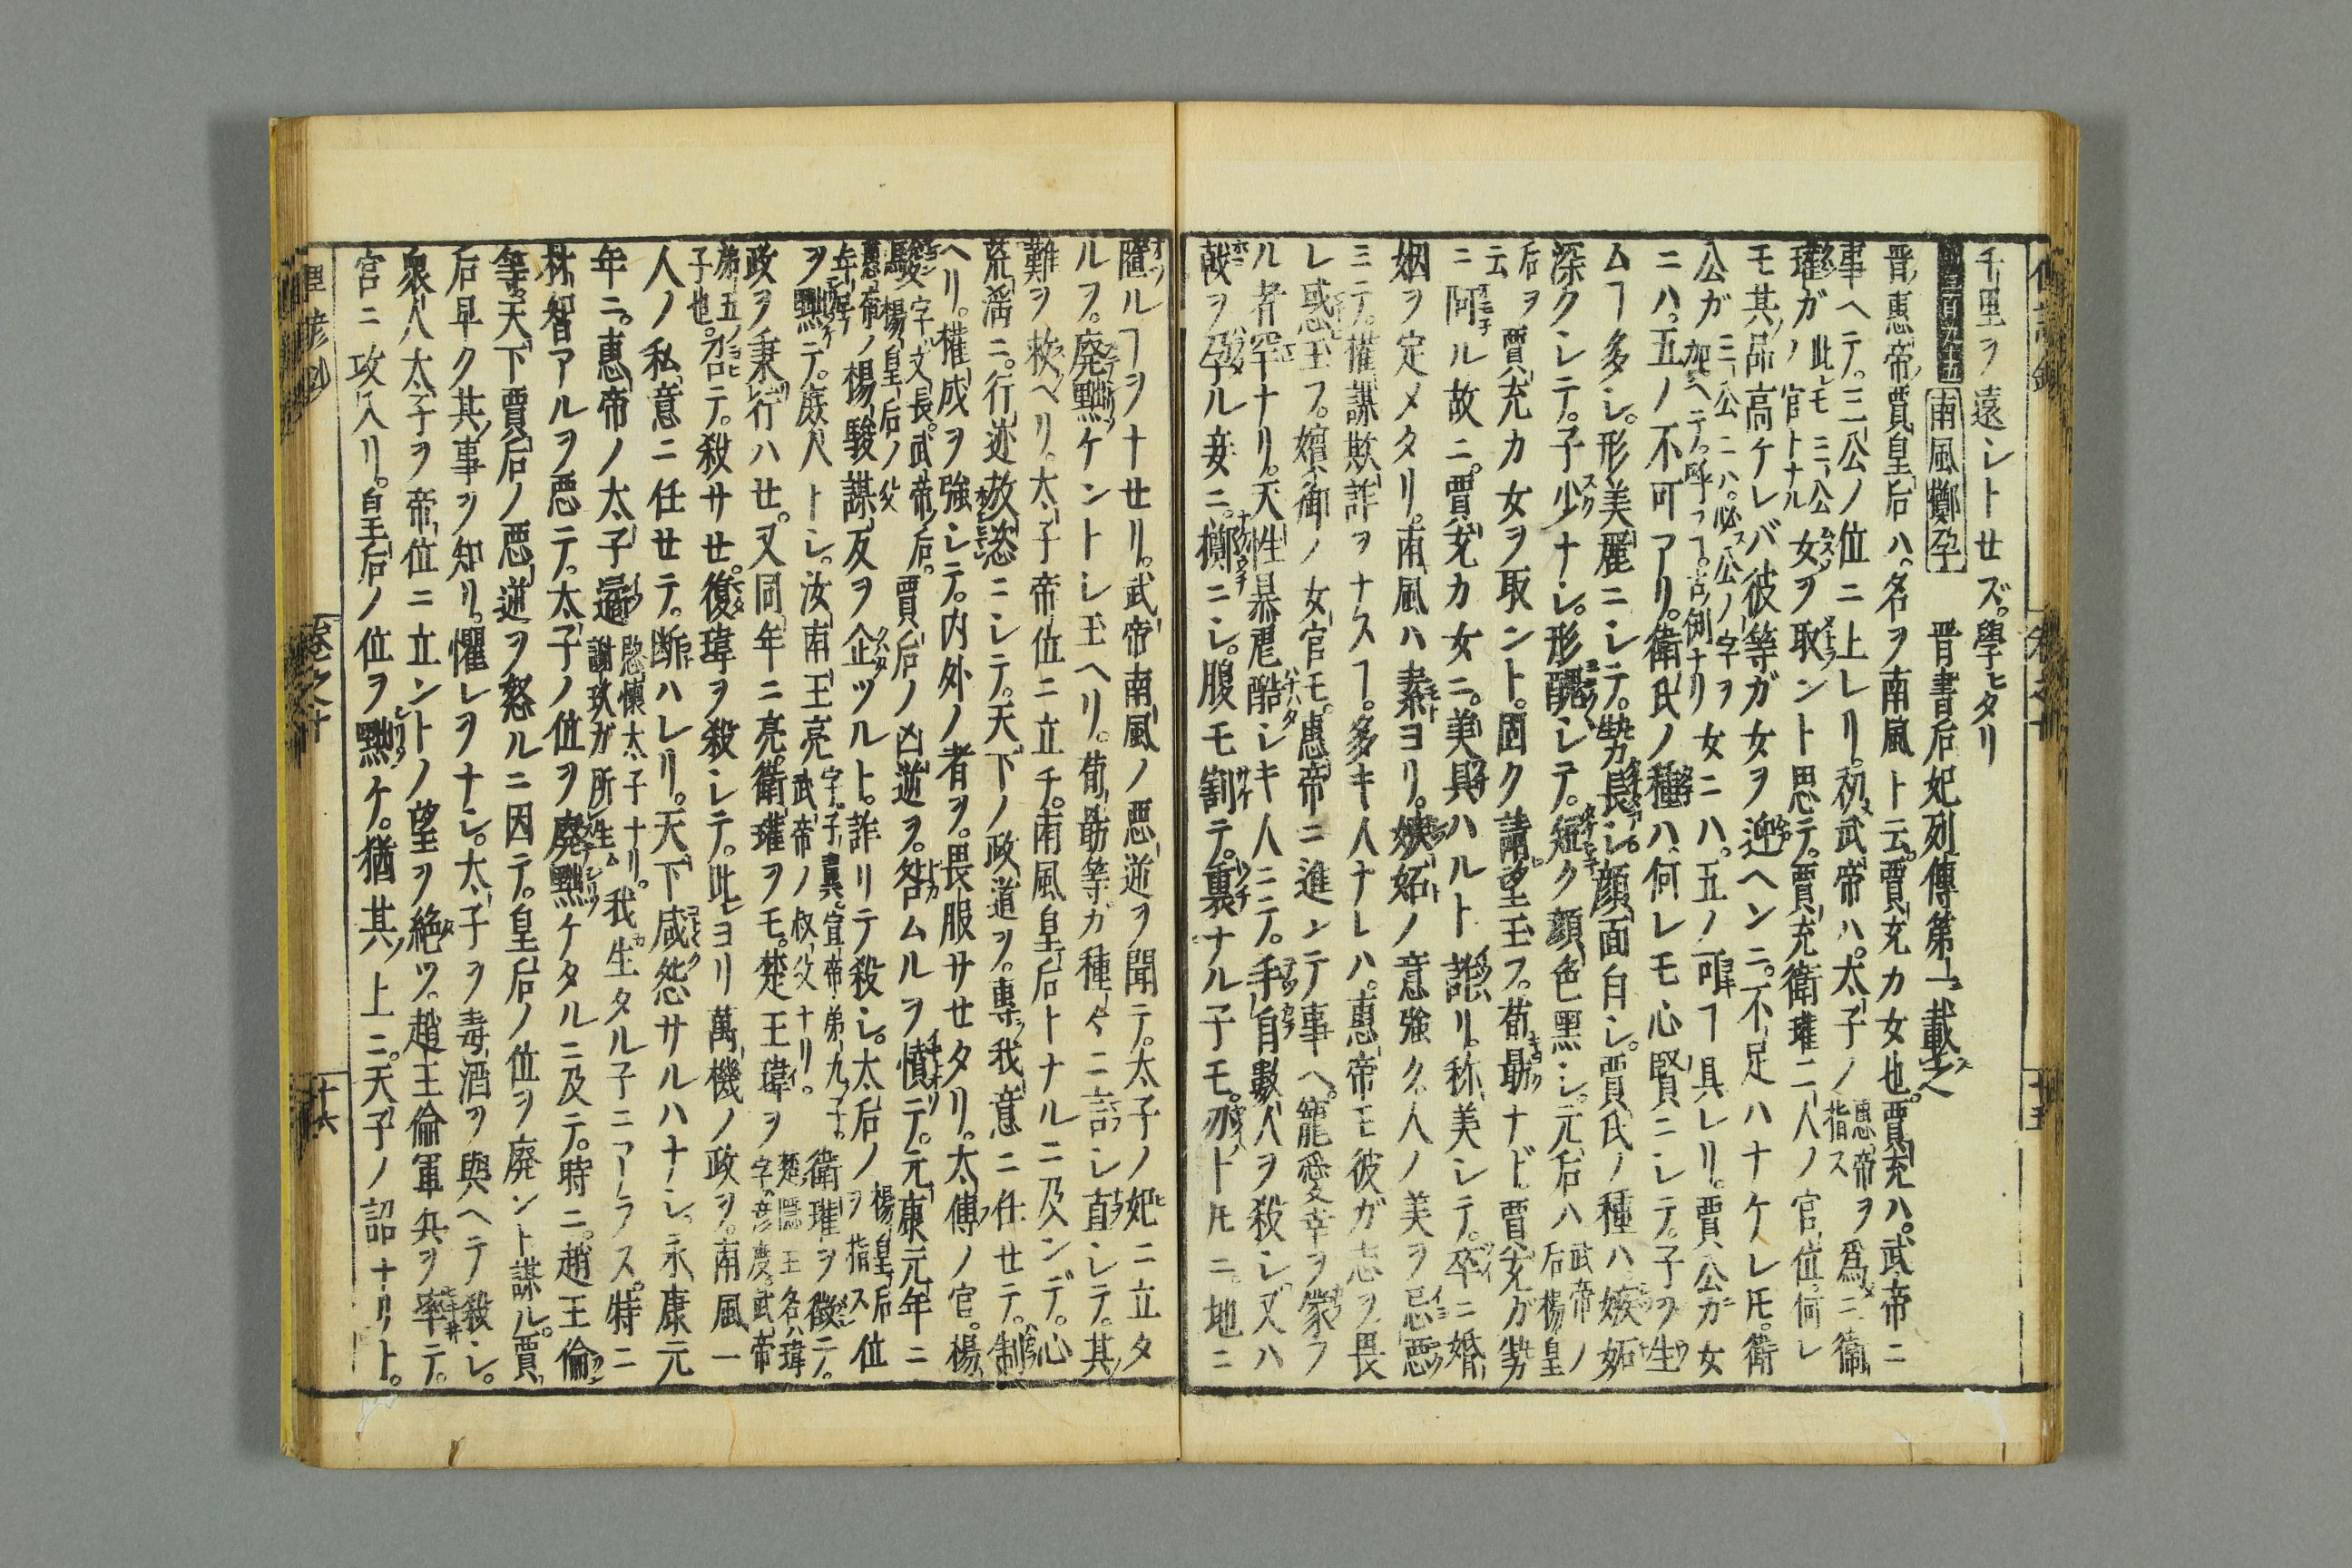 千里ヲ遠シトセズ。學ヒタリ
南風擲孕 晋書后妃列傳第一載之
晋惠帝賈皇后ハ。名ヲ南風ト云。賈充カ女也。賈充ハ。武帝ニ
事ヘテ。三公ノ位ニ上レリ。初武帝ハ。太子ノ 惠帝ヲ指ス 爲ニ衛
瓘ガ 此モ三公ノ官トナル 女ヲ取ント思テ。賈充衛瓘二人ノ官位。何レ
モ其品高ケレバ彼等ガ女ヲ迎ヘンニ。不足ハナケレ𪜈。衛
公ガ 三公ニハ。必公ノ字ヲ加ヘテ。呼フヿ。古例ナリ 女ニハ。五ノ可ヿ具レリ。賈公ガ女
ニハ。五ノ不可アリ。衛氏ノ種ハ何レモ心賢ニシテ。子ヲ生
ムヿ多シ。形美麗ニシテ。勢長シ。顔面白シ。賈氏ノ種ハ嫉妬
深クシテ。子少ナシ。形醜シテ。短ク顔色黒シ。元后ハ 武帝ノ后楊皇
后ヲ云 賈充カ女ヲ取ント。固ク請望玉フ。荀勗ナド。賈充ガ勢
ニ阿ル故ニ。賈充カ女ニ。美具ハルト譽リ。称美シテ。卒ニ婚
姻ヲ定メタリ。南風ハ素ヨリ。嫉妬ノ意強ク人ノ美ヲ忌悪
ミテ。權謀欺詐ヲナスヿ。多キ人ナレハ。惠帝モ彼ガ志ヲ畏
レ惑玉フ。嬪御ノ女官モ。惠帝ニ進ンテ事ヘ。寵愛幸ヲ蒙フ
ル者罕ナリ。天性暴虐酷シキ人ニテ。手自數人ヲ殺シ。又ハ
戟ヲ孕ル妾ニ。擲ニシ。腹モ割テ。裏ナル子モ。刃ト𪜈ニ。地ニ
隨ルヿヲナセリ。武帝南風ノ悪逆ヲ聞テ。太子ノ妃ニ立タ
ルヲ。廃黜ケントシ玉ヘリ。荀勗等ガ種々ニ言シ直シテ。其
難ヲ救ヘリ。太子帝位ニ立チ。南風皇后トナルニ及ンデ。心
荒滛ニ。行迹放恣ニシテ。天下ノ政道ヲ。專我意ニ任セテ。制
ヘリ。權成ヲ強シテ。内外ノ者ヲ。畏服サセタリ。太傅ノ官。楊
駿 字文長。武帝后。楊皇后ノ父 賈后ノ凶逆ヲ。咎ムルヲ憤テ。元康元年ニ
惠帝ノ年号 楊駿謀反ヲ企ツルト。詐リテ殺シ。太后ノ 楊皇后ヲ指ス 位
ヲ黜テ。庶人トシ。汝南王亮 字子翼宣帝第九子。武帝ノ叔父ナリ。 衛瓘ヲ徴テ。
政ヲ秉行ハセ。又同年ニ亮。衛瓘ヲモ。楚王瑋ヲ 楚隱王名瑋字彦度武帝
第五ノ子也。 召テ。殺サセ。復瑋ヲ殺シテ。此ヨリ萬機ノ政ヲ。南風一
人ノ私意ニ任セテ。断ハレリ。天下咸怨サルハナシ。永康元
年ニ。惠帝ノ太子遹 愍懷太子ナリ。謝玖ガ所生ム 我生タル子ニアラス。特ニ
秫智アルヲ悪テ。太子ノ位ヲ廃黜ケタルニ及テ。時ニ。趙王倫
等。天下賈后ノ悪逆ヲ怒ルニ因テ。皇后ノ位ヲ廃ント謀ル。賈
后早ク其事ヲ知リ。懼レヲナシ。太子ヲ毒酒ヲ與ヘテ殺シ。
衆人太子ヲ帝位ニ立ントノ望ヲ絶ツ。趙王倫軍兵ヲ率テ。
宮ニ攻入リ。皇后ノ位ヲ黜ケ。猶其上ニ。天子ノ詔ナリト。
卷之十
十六